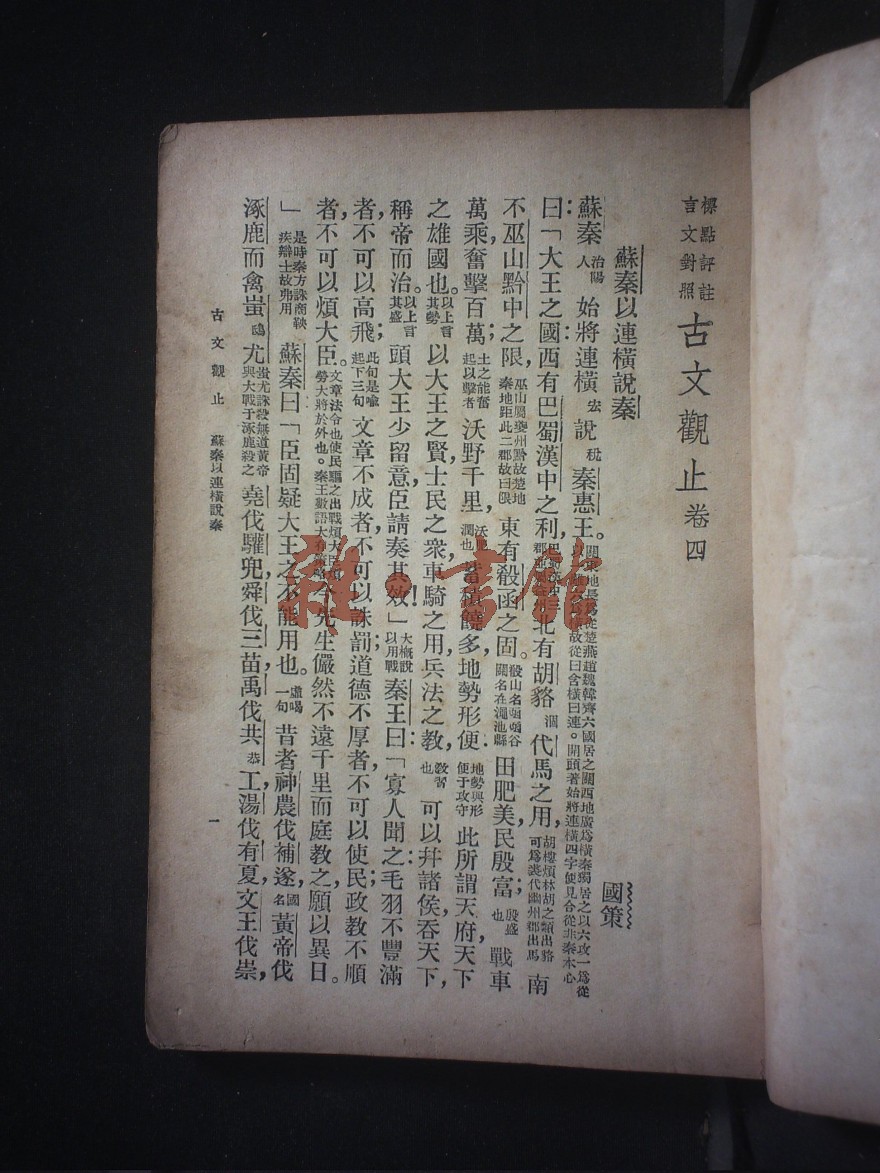 標點評註
言文對照
古文觀止卷四
蘇秦以連橫說秦
國策
蘇秦洛陽人始將連橫宏說稅秦惠王。關東地長爲從楚燕趙魏韓齊六國居之關西地廣爲橫秦獨居之以六攻一爲從故從曰合橫曰連。開頭著始將連橫四字便見合從非秦本心
曰:「大王之國西有巴蜀漢中之利,北有胡貉涸代馬之用,胡樓煩林胡之類出貉可爲裘代幽州郡出馬南
不巫山黔中之限,巫山屬夔州黔故楚地秦地距此二郡故曰限東有殽函之固。殽山名函函谷關名在澠池縣田肥美民殷富;殷盛也戰車
萬乘奮擊百萬;士之能奮起以擊者沃野千里,沃潤也蓄積饒多,地勢形便:地勢與形便于攻守此所謂天府,天下
之雄國也。以上言其勢以大王之賢士民之衆車騎之用兵法之教,教習也可以幷諸侯吞天下,
稱帝而治。以上言其盛頭大王少留意,臣請奏其效!」大槪說以用戰秦王曰:「寡人聞之:毛羽不豐滿
者,不可以高飛;此句是喩起下三句文章不成者,不可以誅罰;道德不厚者,不可以使民;政教不順
者,不可以煩大臣。文章法令也使民驅之出戰煩大臣勞大將於外也。秦王數語大有今先生儼然不遠千里而庭教之,願以異日。
」是時秦方誅商鞅疾辯士故弗用蘇秦曰「臣固疑大王之不能用也。虛喝一句昔者神農伐補遂,國名黃帝伐
涿鹿而禽蚩鴟尤蚩尤誅殺無道黃帝與大戰于涿鹿殺之堯伐驩兜,舜伐三苗,禹伐共恭工,湯伐有夏,文王伐崇,
古文觀止 蘇秦以連橫說秦 一
雜·書館